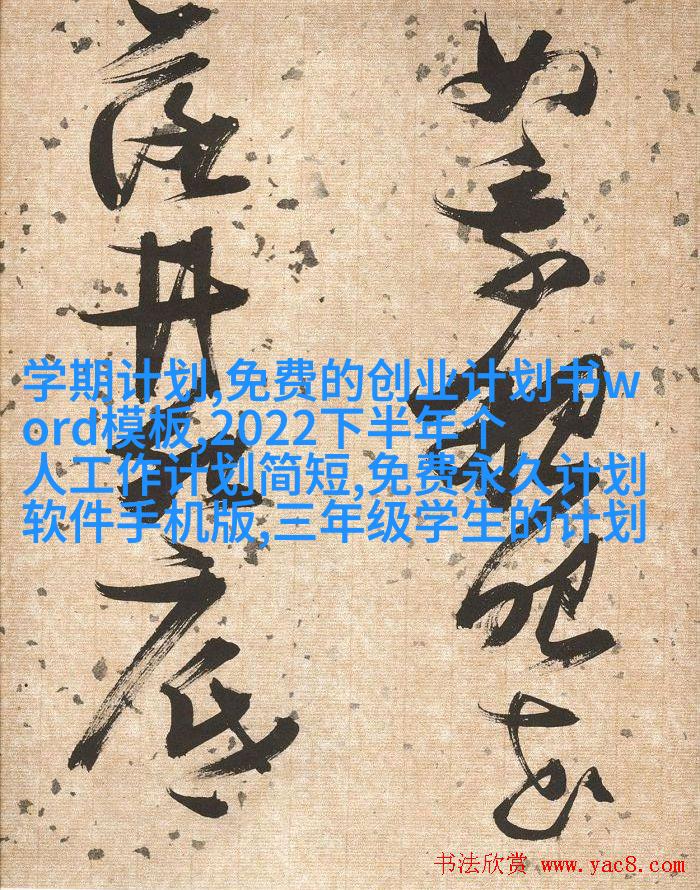 如
落井底
学期计划,免费的创业计划书w
ord模板,2022下半年个
人工作计划简短,免费永久计划
软件手机版,三年级学生的计划
书法欣赏 www.yac8.com